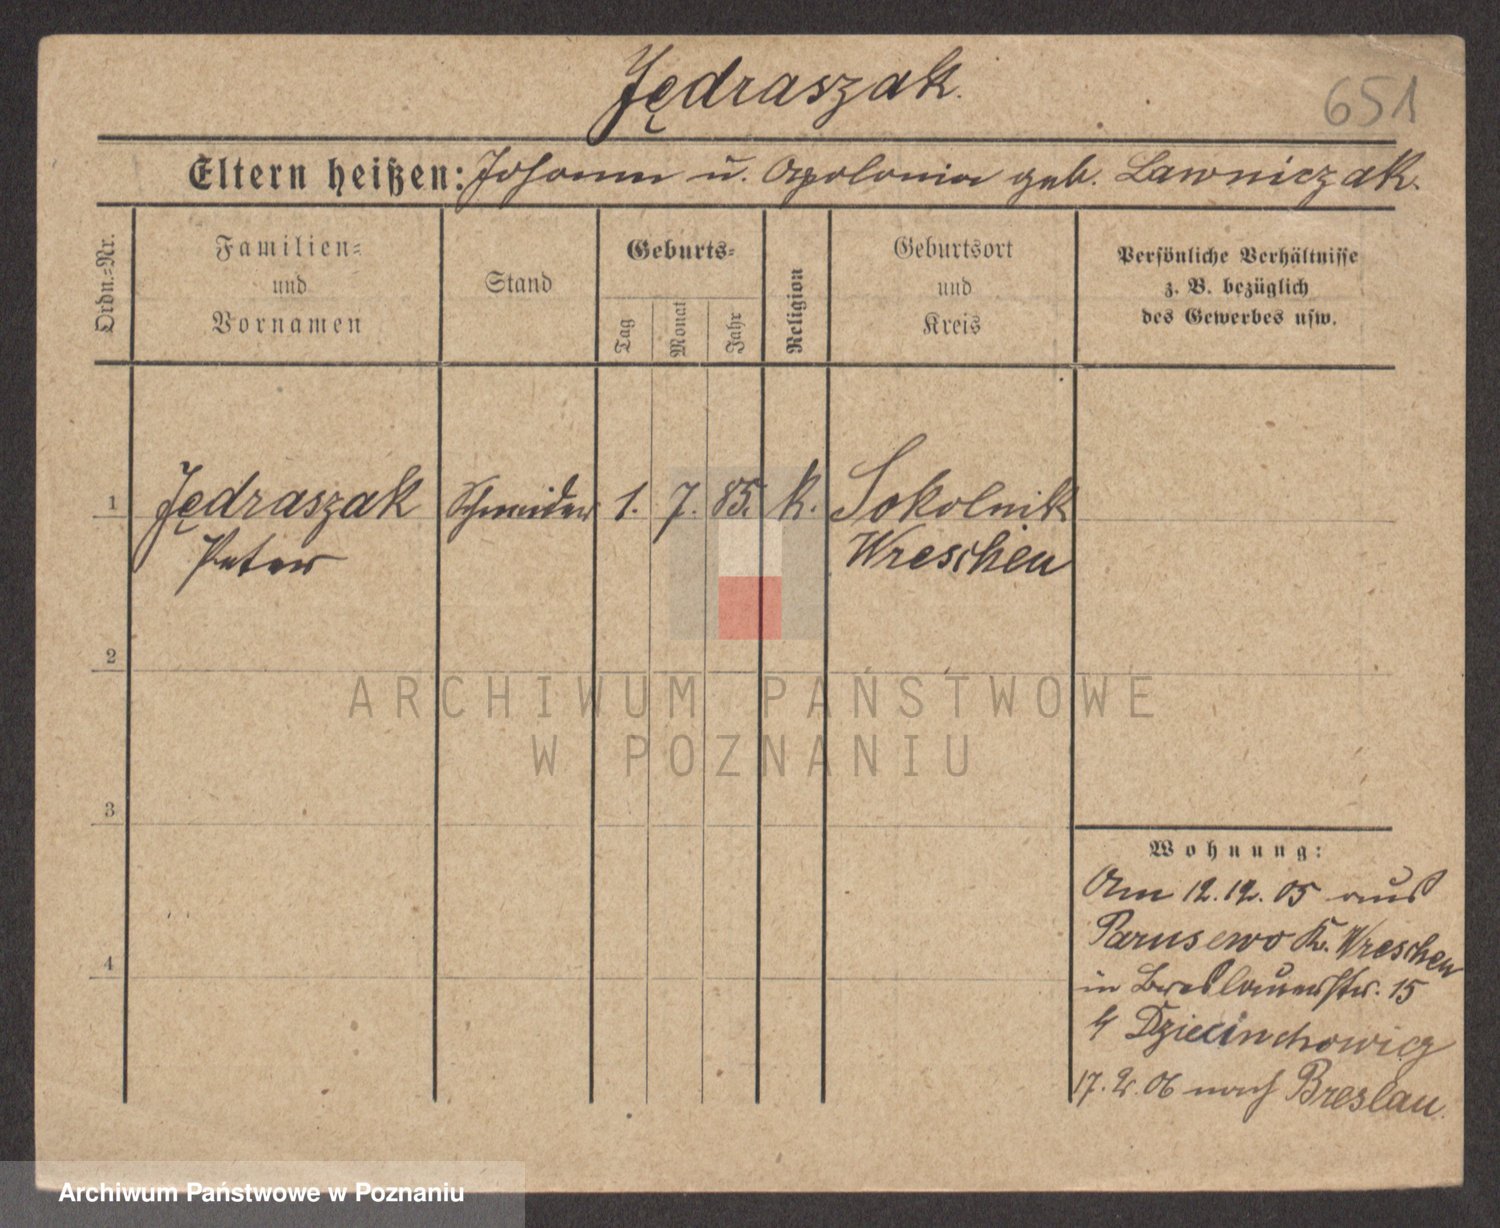 Jędraszak.
651
Eltern heißen: Johann u. Apolonia geb. Lawniczak.
Ordn.=Nr.
Familien=
und
Vornamen
Stand
Geburts=
Tag
Monat
Jahr
Religion
Geburtsort
und
Kreis
Persönliche Verhältnisse
z. B. bezüglich
des Gewerbes usw.
1 Jędraszak Schneider 1. 7. 85. k. Sokolnik
Peter Wreschen
2
ARCHIWUM PAŃSTWOWE
W POZNANIU
3
Wohnung:
Am 12.12.05 aus
Parusewo K. Wreschen
4
in Breslauerstr. 15
17.2.06 nach Breslau.
Archiwum Państwowe w Poznaniu